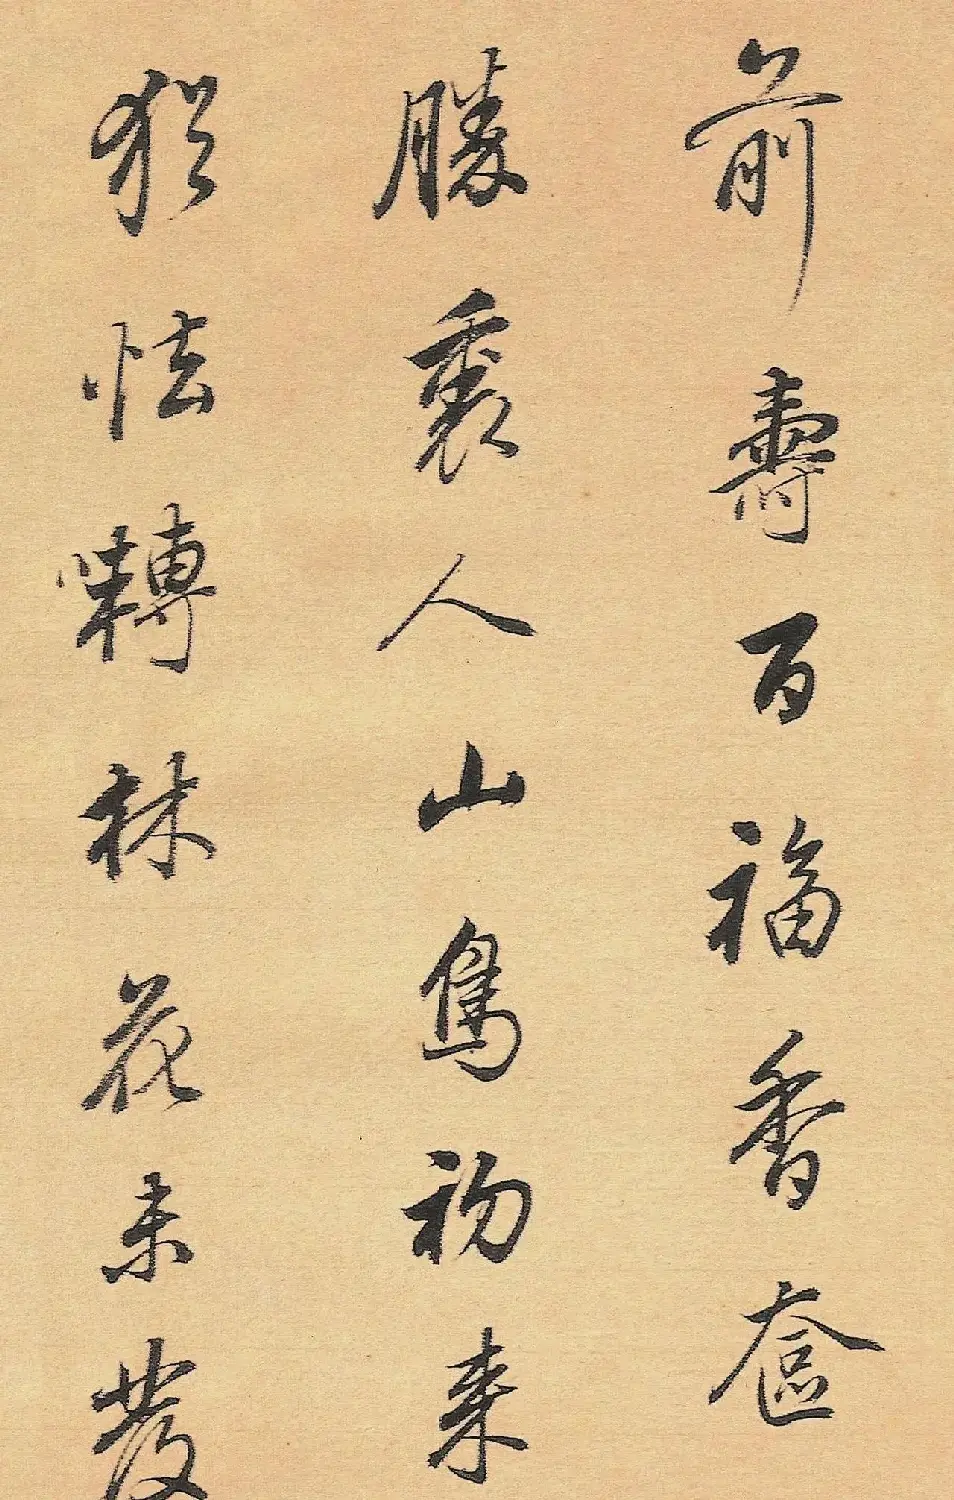 前壽百福香奩
勝裏人山鳥初来
猶怯囀林花未發